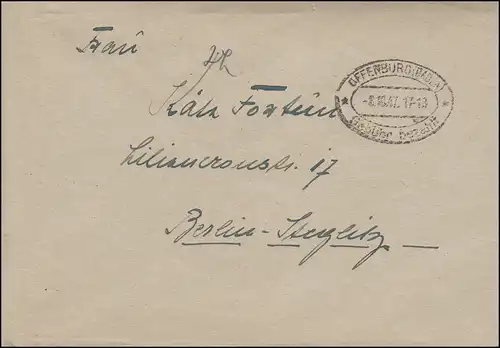 Frau
OFFENBURG (BADEN)
-8.10.47. 17-18
Gebühr bezahlt
Käte
Liliencronstr. 17
Berlin-Steglitz